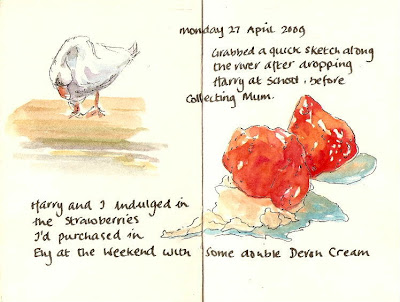 monday 27 April 2009
Grabbed a quick sketch along
the river after dropping
Harry at School, before
collecting Mum.
Harry and I indulged in
the Strawberries
I'd purchased in
Ely at the Weekend with some double Devon Cream